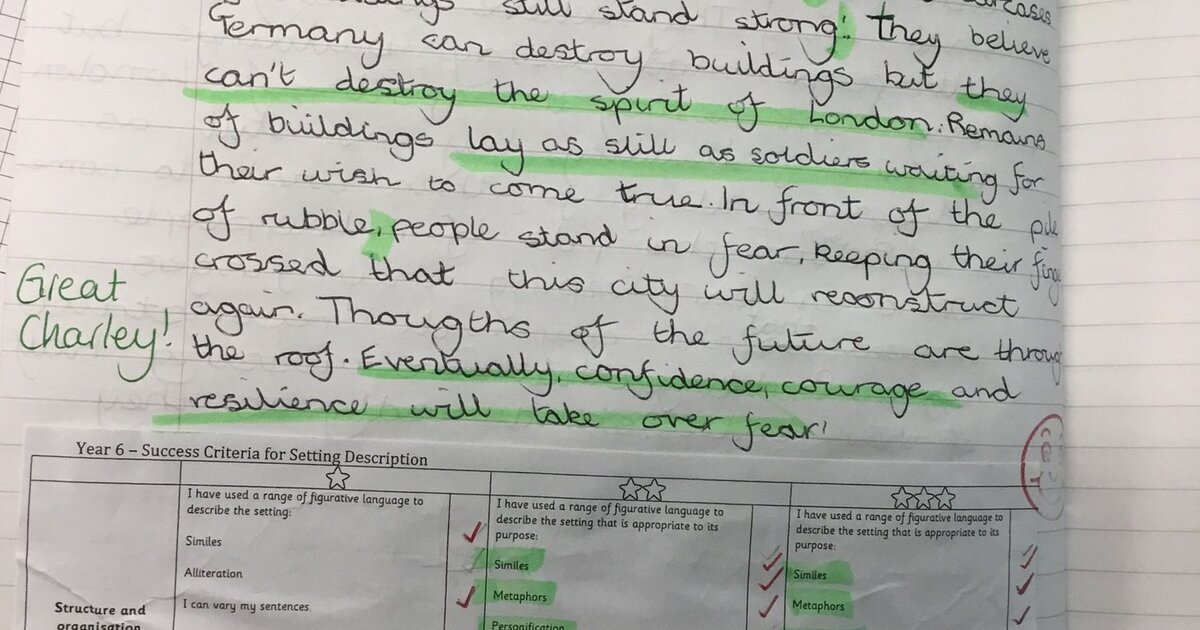 still stand strong. they believe
Germany can destroy buildings but they
can't destroy the spirit of London. Remains
of buildings lay as still as soldiers waiting for
their wish to come true. In front of the
of rubble, people stand in fear, keeping their
crossed that this city will reconstruct
again. Thougths of the future are
the roof. Eventually, confidence, courage and
resilience will take over fear!
Great
Charley!
Year 6 – Success Criteria for Setting Description
Structure and
organisation
I have used a range of figurative language to
describe the setting:
Similes
Alliteration
I can vary my sentences
I have used a range of figurative language to
describe the setting that is appropriate to its
purpose:
Similes
Metaphors
Personification
I have used a range of figurative language to
describe the setting that is appropriate to its
purpose:
Similes
Metaphors